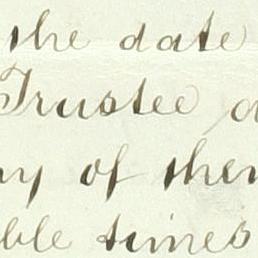 the date
Trustee
of them
times